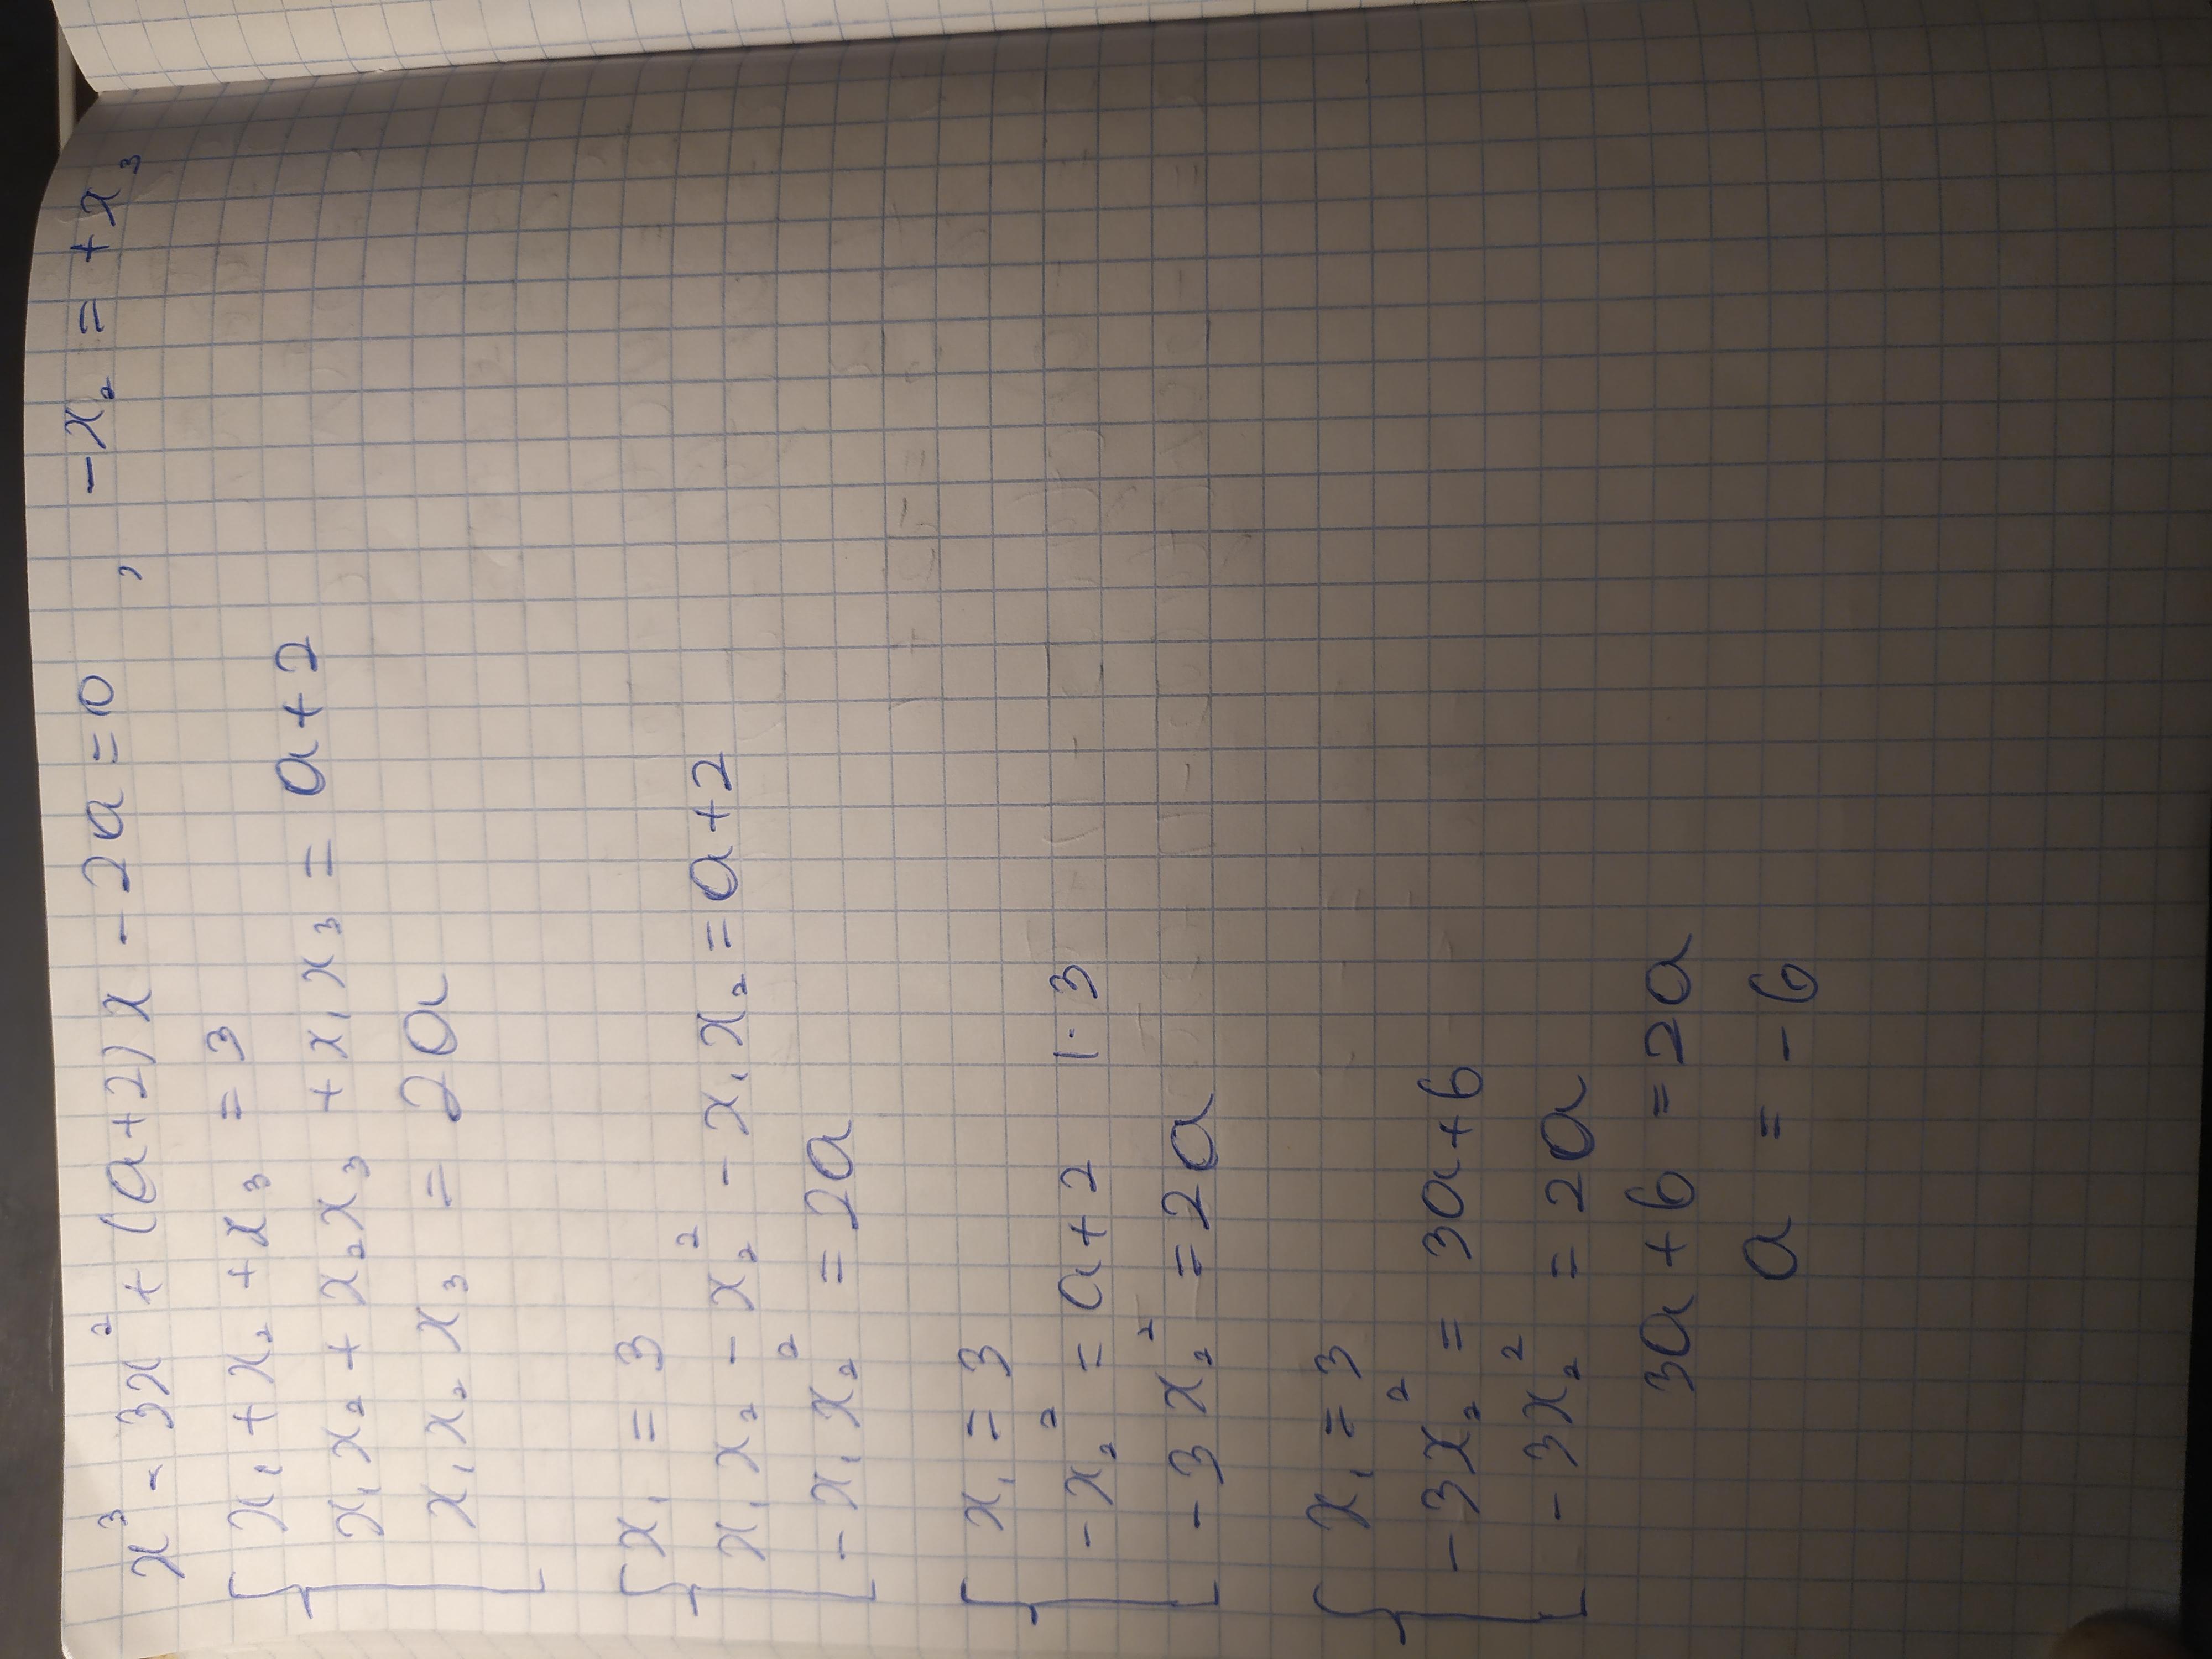 x³ - 3x² + (a+2)x - 2a = 0 , -x₂ = +x₃
x₁ + x₂ + x₃ = 3
x₁x₂ + x₂x₃ + x₁x₃ = a+2
x₁x₂x₃ = 2a
x₁ = 3
x₁x₂ - x₂² - x₁x₂ = a+2
-x₁x₂² = 2a
x₁ = 3
-x₂² = a+2 |·3
-3x₂² = 2a
x₁ = 3
-3x₂² = 3a+6
-3x₂² = 2a
3a+6 = 2a
a = -6